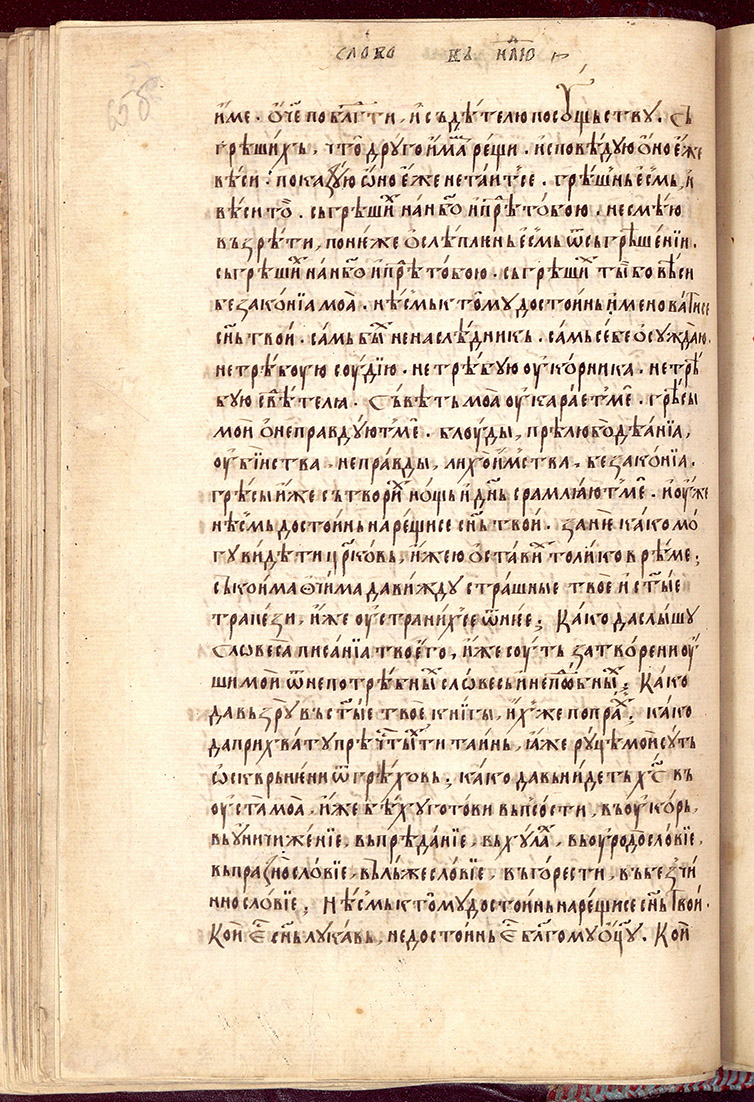 слово въ н҃лю
и҆ме · ѻ҆ч҃е по бл҃гⷣти, и҆ съдѣ́телю по соу́щьству · Съ
грѣши́хь, что̀ дру́го и҆мамь рещѝ · и҆сповѣ́дую о҆́но е҆́же
вѣ́си · показую ѡ҆но е҆́же не таит'се · грѣшнь е҆́смь, и҆
вѣ́си то̀ · сьгрѣшиⷯ на нб҃о и҆ прⷣѣ тобо́ю · не смѣ́ю
възрѣ́ти, поне́же о҆слѣпле́нь е҆́смь ѿ сьгрѣше́нїи ·
сьгрѣшиⷯ на нб҃о и҆ прⷣѣ тобо́ю · сьгрѣшиⷯ ты̀ бо вѣ́си
безако́нїа моа̀ · нѣ́смь к томꙋ̀ досто́инь и҆менова́тисе
сн҃ь тво́и · самь быⷯ ненаслѣ́дникь · са́мь се́бе о҆сужда́ю ·
не трѣ́боую соудїю · не трѣ́бую оу҆ко́рника · не трѣ́
бую свⷣѣтеля · Съвѣ́сть моа̀ оу҆кара́ет' ме · грѣсы̀
моѝ о҆неправдꙋют' ме · блоу́ды, прѣлюбодѣ́анїа,
оу҆бїнства · непра́вды, лихои҆́мства · безако́нїа ·
грѣсы̀ и҆́же сътвориⷯ но́щь и҆ дн҃ь срамлꙗ́ют' ме · и҆ оу҆́же
нѣ́смь досто́инь нарещи́се сн҃ь тво́и · зане́ ка́ко мо
гꙋ ви́дѣти цр҃ковь, и҆́же ю о҆ста́виⷯ толи́ко врѣ́ме ;
сь кои́ма ѻ҆чи́ма да ви́ждꙋ стра́шные твое́ и҆ ст҃ые
трапе́зи, и҆́же оу҆страних'се ѿ не́е ; Ка́ко да слы́шꙋ
Словеса̀ писа́нїа твое҆го, и҆́же соу́ть затворе́ни оу҆́
ши моѝ ѿ непотрѣ́бныⷯ слове́сь и҆ неп҃о́бныⷯ ; Ка́ко
да възрꙋ̀ въ ст҃ые твое́ кни́гы, и҆́х'же попраⷯ ; ка́ко
да прихвату прⷱѣты́ⷯ ти таи́нь, и҆́же рꙋ́цѣ моѝ сꙋть
ѡ҆скврьне́ни ѿ грѣ́ховь ; ка́ко да вьни́деть хс҃ въ
оу҆ста̀ моа̀ · и҆́же бѣ́хꙋ гото́ви вь псости, въ оу҆ко́рь,
вь ꙋ҆ничиже́нїе, вь прѣда́нїе, вь хулаⷯ, вь оу҆родосло́вїе,
вь празнносло́вїе, вь лъжесло́вїе, въ го́рести, въ безчи
нносло́вїе ; Нѣ́смь к томꙋ̀ досто́инь нарещи́се сн҃ь тво́и ·
Ко́и е҆с҃ сн҃ь лука́вь, недосто́инь е҆с҃ бл҃гомꙋ ѻ҆ц҃ꙋ · Ко́и